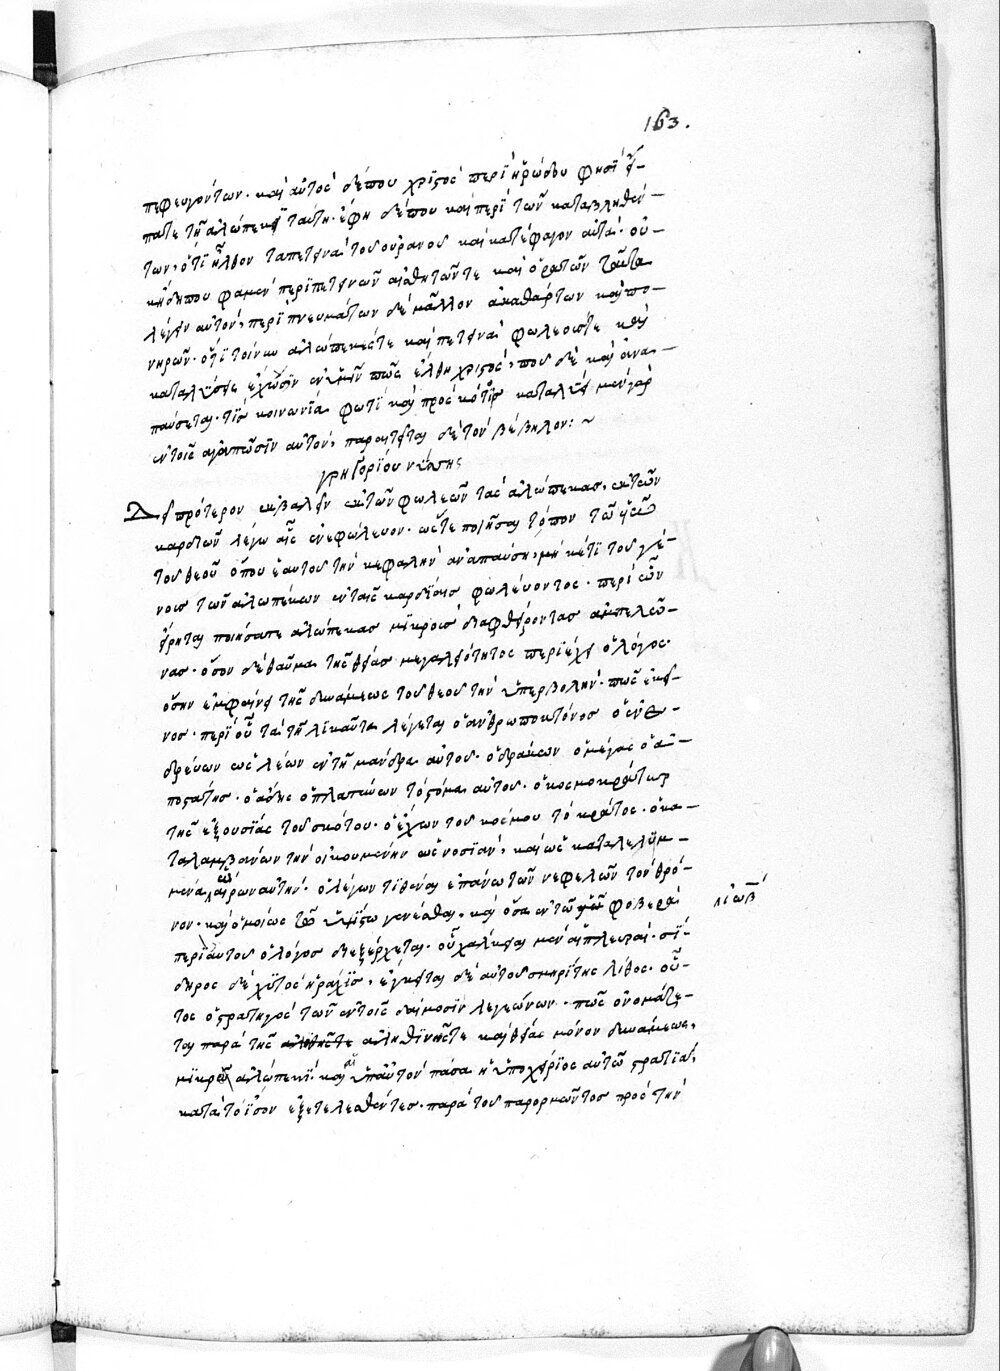 163.
πεφευγότων· καὶ αὐτὸς δέ που χριστὸς περὶ ἡρώδου φησὶ εἴ-
πατε τῇ ἀλώπεκι ταύτῃ· ἔφη δέ που καὶ περὶ τῶν καταβληθέν-
των, ὅτι ἦλθον τὰ πετεινὰ τοῦ οὐρανοῦ καὶ κατέφαγον αὐτά· οὐ-
κ δήπου φαμὲν περὶ πετεινῶν αἰσθητῶν τε καὶ ὁρατῶν ταῦτα
λέγειν αὐτόν, περὶ πνευμάτων δὲ μᾶλλον ἀκαθάρτων καὶ πο-
νηρῶν· ὅτε τοίνυν ἀλώπεκές τε καὶ πετεινὰ φωλεούς τε καὶ
καταλύσεις ἔχωσιν ἐν ἡμῖν πῶς ἔλθῃ χριστός, ποῦ δὲ καὶ ἀνα-
παύσεται· τίς κοινωνία φωτὶ καὶ πρὸς σκότος καταλύει μὲν γὰρ
ἐν τοῖς ἀγαπῶσιν αὐτόν, παραιτεῖται δὲ τὸν βέβηλον: ~
γρηγορίου νύσης
Δεῖ πρότερον ἐκβαλεῖν ἐκ τῶν φωλεῶν τὰς ἀλώπεκας, ἐκ τῶν
καρδιῶν λέγω αἷς ἐνεφώλευον· ὥστε ποιῆσαι τόπον τῷ υἱῷ
τοῦ θεοῦ ὅπου ἑαυτοῦ τὴν κεφαλὴν ἀναπαύσῃ, μηκέτι τοῦ γέ-
νους τῶν ἀλωπέκων ἐν ταῖς καρδίαις φωλεύοντος· περὶ ὧν
εἴρηται πιάσατε ἀλώπεκας μικροὺς διαφθείροντας ἀμπελῶ-
νας· ὅσον δὲ θαῦμα τῆς θείας μεγαλειότητος περιέχει ὁ λόγος·
ὅσην ἐμφαίνει τῆς δυνάμεως τοῦ θεοῦ τὴν ὑπερβολήν· πῶς ἐκεῖ-
νος· περὶ οὗ τὰ τηλικαῦτα λέγεται ὁ ἀνθρωποκτόνος ὁ ἐνε-
δρεύων ὡς λέων ἐν τῇ μάνδρᾳ αὐτοῦ· ὁ δράκων ὁ μέγας ὁ ἀ-
ποστάτης· ὁ ᾅδης ὁ πλατύνων τὸ στόμα αὐτοῦ· ὁ κοσμοκράτωρ
τῆς ἐξουσίας τοῦ σκότου· ὁ ἔχων τοῦ κόσμου τὸ κράτος· ὁ κα-
ταλαμβάνων τὴν οἰκουμένην ὡς νοσιάν, καὶ ὡς καταλελυμ-
μένα ὠὰ αἴρων αὐτήν· ὁ λέγων τιθέναι ἐπάνω τῶν νεφελῶν τὸν θρό-
νον· καὶ ὅμοιος τῷ ὑψίστῳ γενέσθαι, καὶ ὅσα ἐν τῷ ἰὼβ φοβερὰ
λ ἰὼβ
περὶ αὐτοῦ ὁ λόγος διεξέρχεται· οὗ χαλκαῖ μὲν αἱ πλευραί· σί-
δηρος δὲ χυτὸς ἡ ῥάχις, ἔγκειται δὲ αὐτοῦ σμηρίτης λίθος· οὗ-
τος ὁ στρατηγὸς τῶν ἐν τοῖς δαίμοσιν λεγεώνων· πῶς ὀνομάζε-
ται παρὰ τῆς ἀληθινῆς τε καὶ θείας μόνον δυνάμεως,
μικρὸν ἀλωπέκι· καὶ ἡ ὑπ' αὐτὸν πᾶσα ἡ ὑποχείριος αὐτῷ στρατιά,
κατὰ τὸ ἴσον ἐξετελέσθησαν· παρὰ τοῦ παρορμῶντος πρὸς τὴν